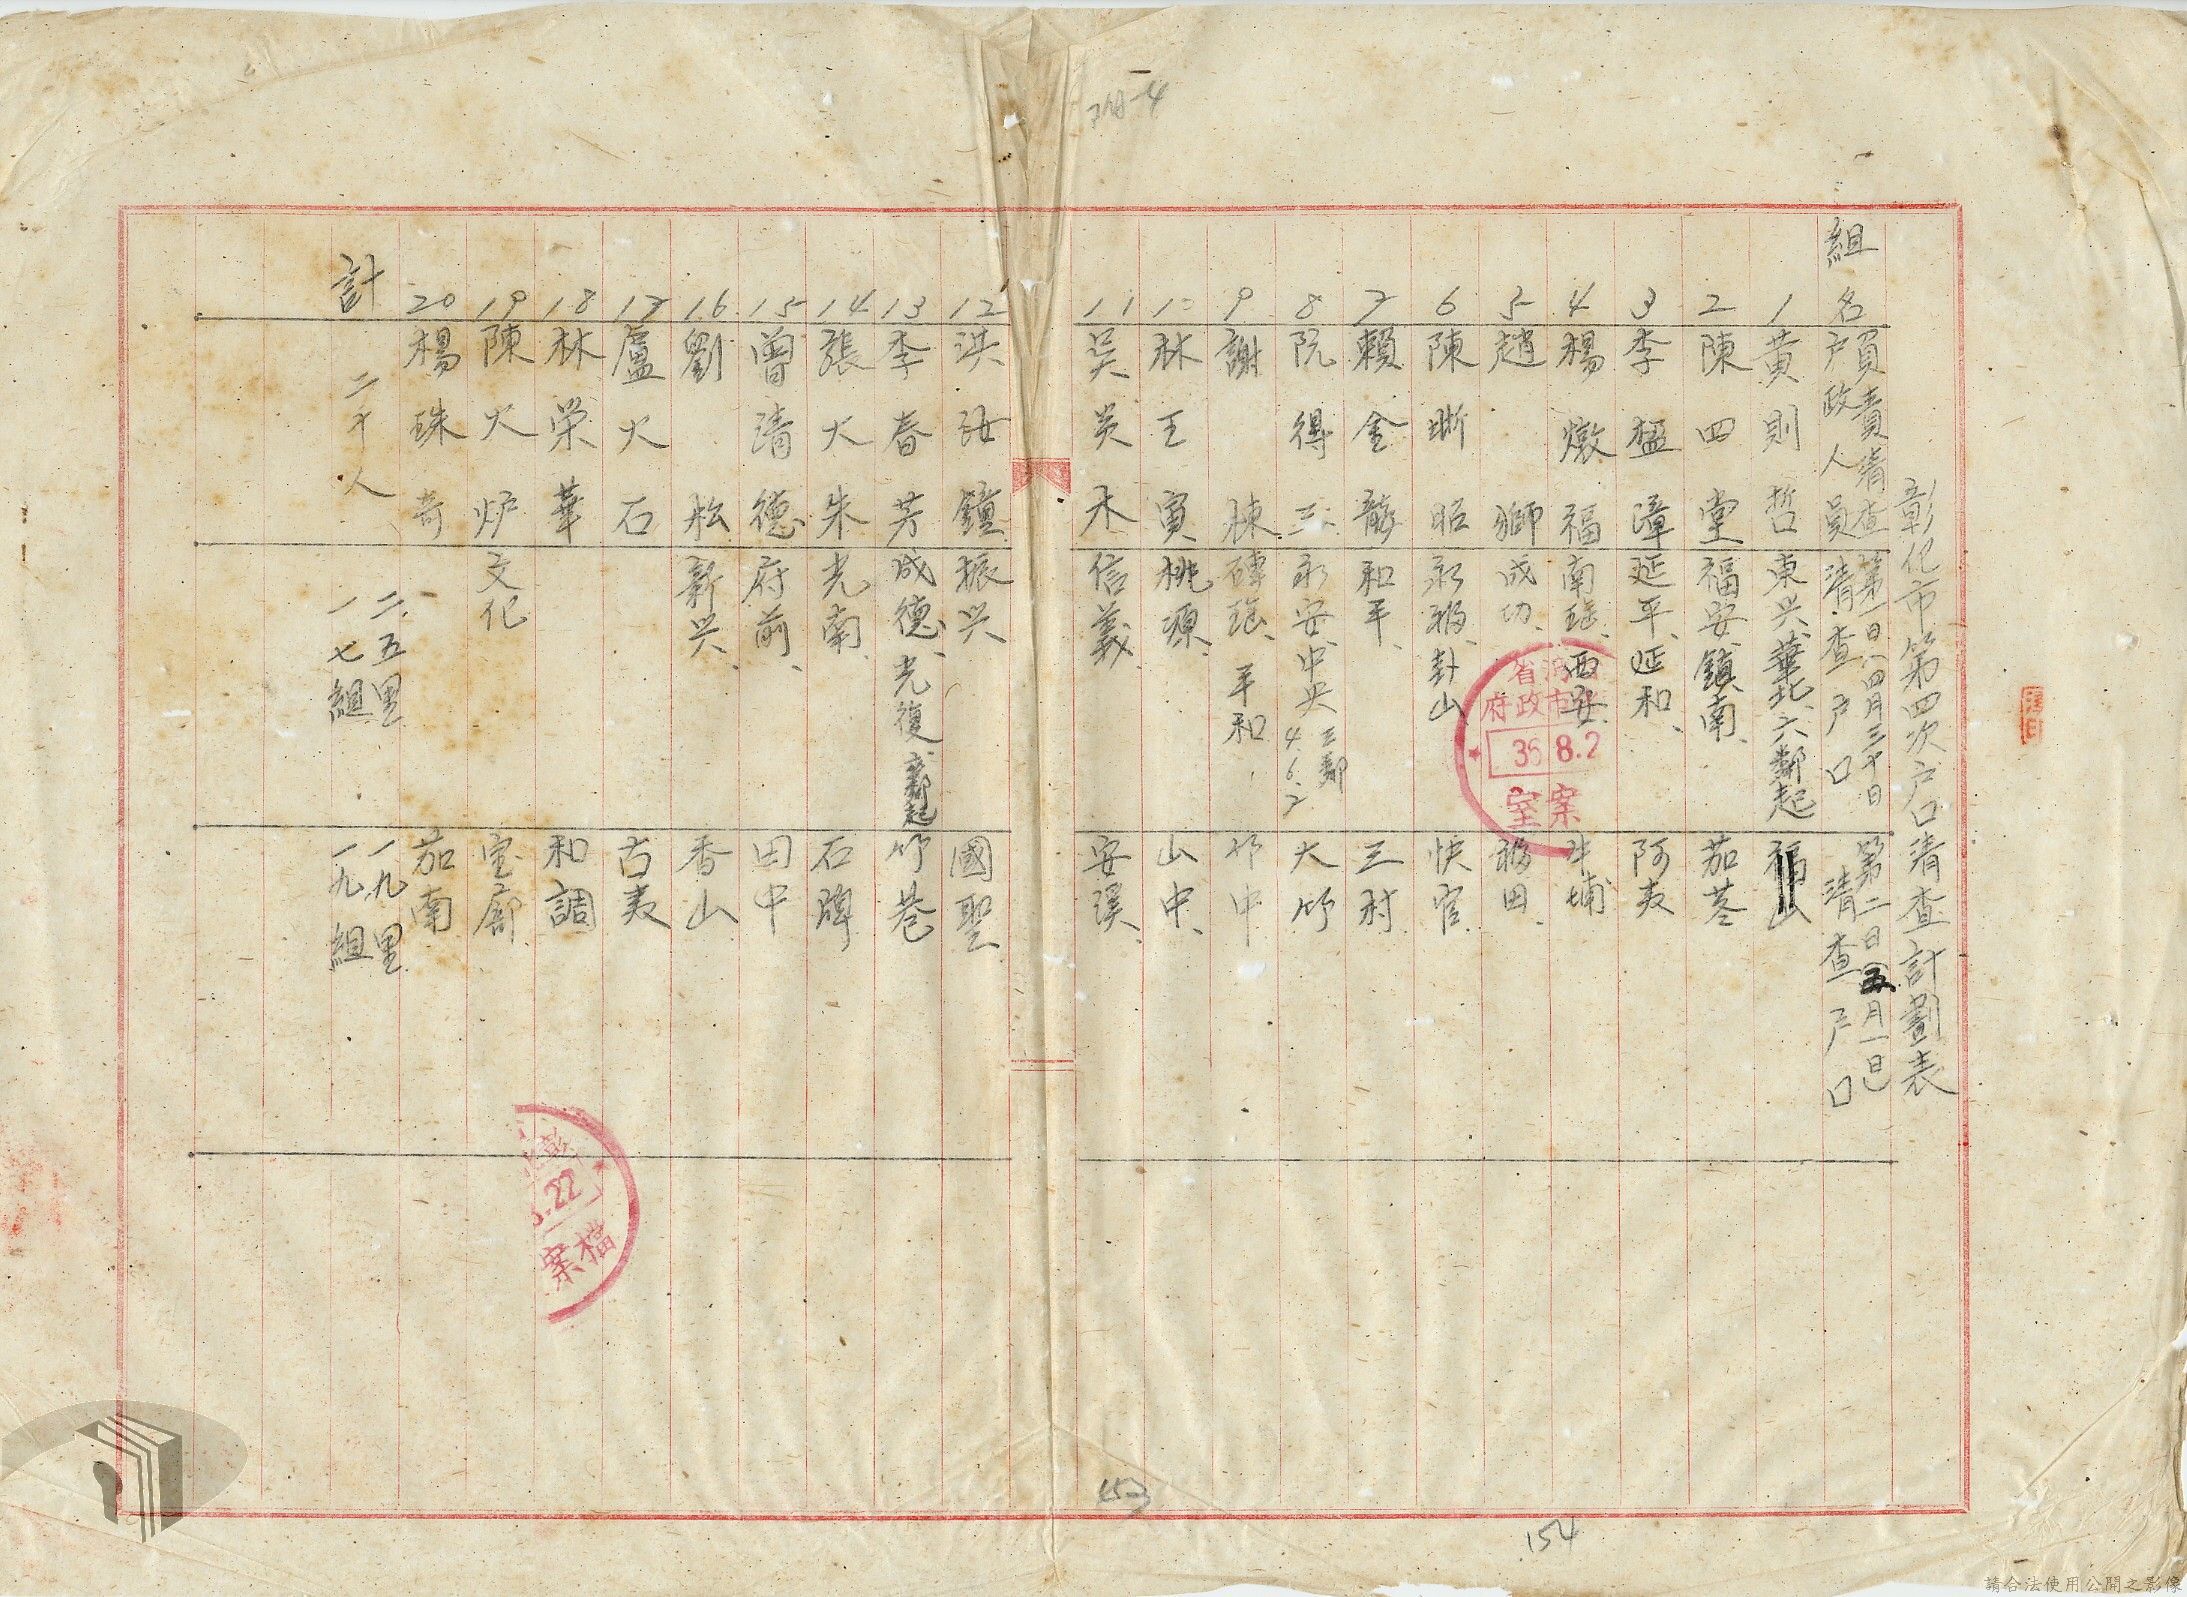 彰化市第四次户口清查計劃表
組名
負責清查户政人員
第一日（四月三十日）清查户口
第二日（五月一日）清查户口
1 黃則哲 東興、華北、六鄰起
2 陳四堂 福安、鎮南、 茄苳
3 李楹漳 延平、延和、 阿夷
4 楊燉福 南瑶、西安、 牛埔
5 趙獅 成功、 福田、
6 陳晰昭 永福、卦山 快官
7 賴金龍 和平、 三村
8 阮得三 永安、中央 三鄰 4.6.7 大竹
9 謝棟 磚瑶、平和、 竹中
10 林王寅 桃源、 山中、
11 吳炎木 信義、 安溪、
12 洪汝鐘 振興 國聖
13 李春芳 成德、光復、 竹巷
14 張大朱 光南、 石牌
15 曾清德 府前、 田中
16 劉松 新興、 香山
17 盧火石 古夷
18 林榮華 和調
19 陳火炉 文化 宝廍
20 楊珠奇 茄南
計 二十人 二五里 一七組 一九里 一九組
省
府政市
36 8.2
室案
彰
.22
案檔
153
154
請合法使用公開之影像